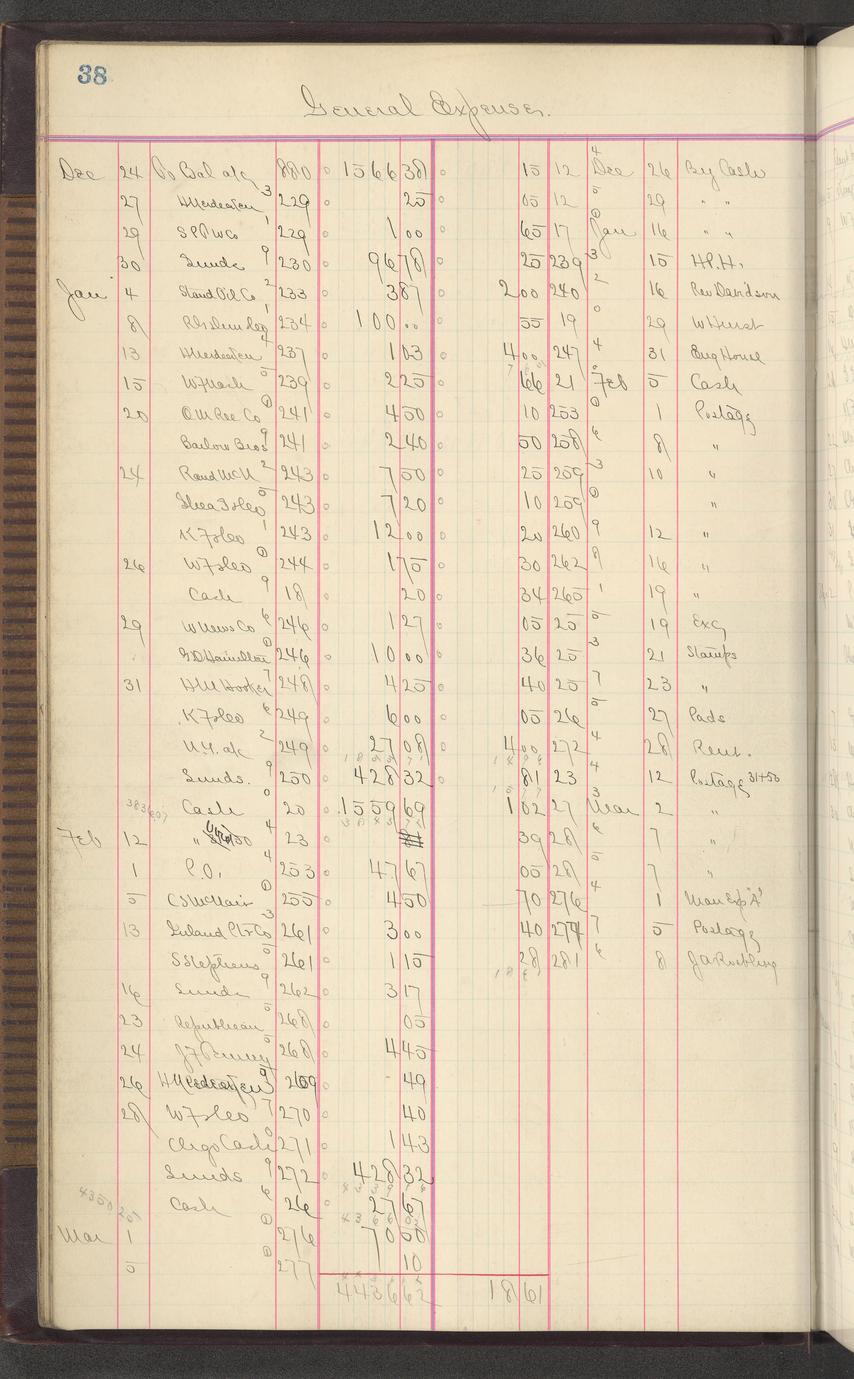 38
General Expenses.
Dec 24 To Bal a/c 880 1566 38 15 12 Dec 26 By Cash
27 229 25 05 12 29 " "
29 S P P W Co 229 1 00 65 17 Jan 16 " "
30 Sunds 230 96 78 25 239 15 H.P.H.
Jan 4 Stand Oil Co 233 3 87 2 00 240 16 Rev Davidson
8 234 100 .. 55 19 29 W Hurst
13 237 1 03 4 00 247 31 Eng House
15 W F Nash 239 2 25 66 21 Feb 5 Cash
20 O M Ree Co 241 4 50 10 253 1 Postage
Barlow Bros 241 2 40 50 258 8 "
24 Rand McN 243 7 50 25 259 10 "
243 7 20 10 259 "
K F & Co 243 12 00 20 260 12 "
26 W F & Co 244 1 75 30 262 16 "
Cash 18 20 34 265 19 "
29 W News Co 246 1 27 05 25 19 Exc
G D Hamilton 246 10 00 36 25 21 Stamps
31 H M Hooker 248 4 25 40 25 23 "
K F & Co 249 6 00 05 26 27 Pads
N.Y. a/c 249 27 08 4 00 272 28 Rent.
Sunds. 250 428 32 81 23 12 Postage 31+50
Cash 20 1559 69 1 02 27 Mar 2 "
Feb 12 " 23 39 28 7 "
1 P.O. 253 47 67 05 28 7 "
5 C S McNair 255 4 50 70 276 1 Man Exp "A"
13 Inland Ptr Co 261 3 00 40 277 5 Postage
S Stephens 261 1 15 28 281 8 J A Roebling
16 Sunds 262 3 17
23 Republican 268 05
24 J F Penney 268 4 45
26 269 49
28 W F & Co 270 40
Chgo Cash 271 1 43
Sunds 272 428 32
Cash 26 27 67
Mar 1 276 70 50
5 277 10
4436 62 18 61